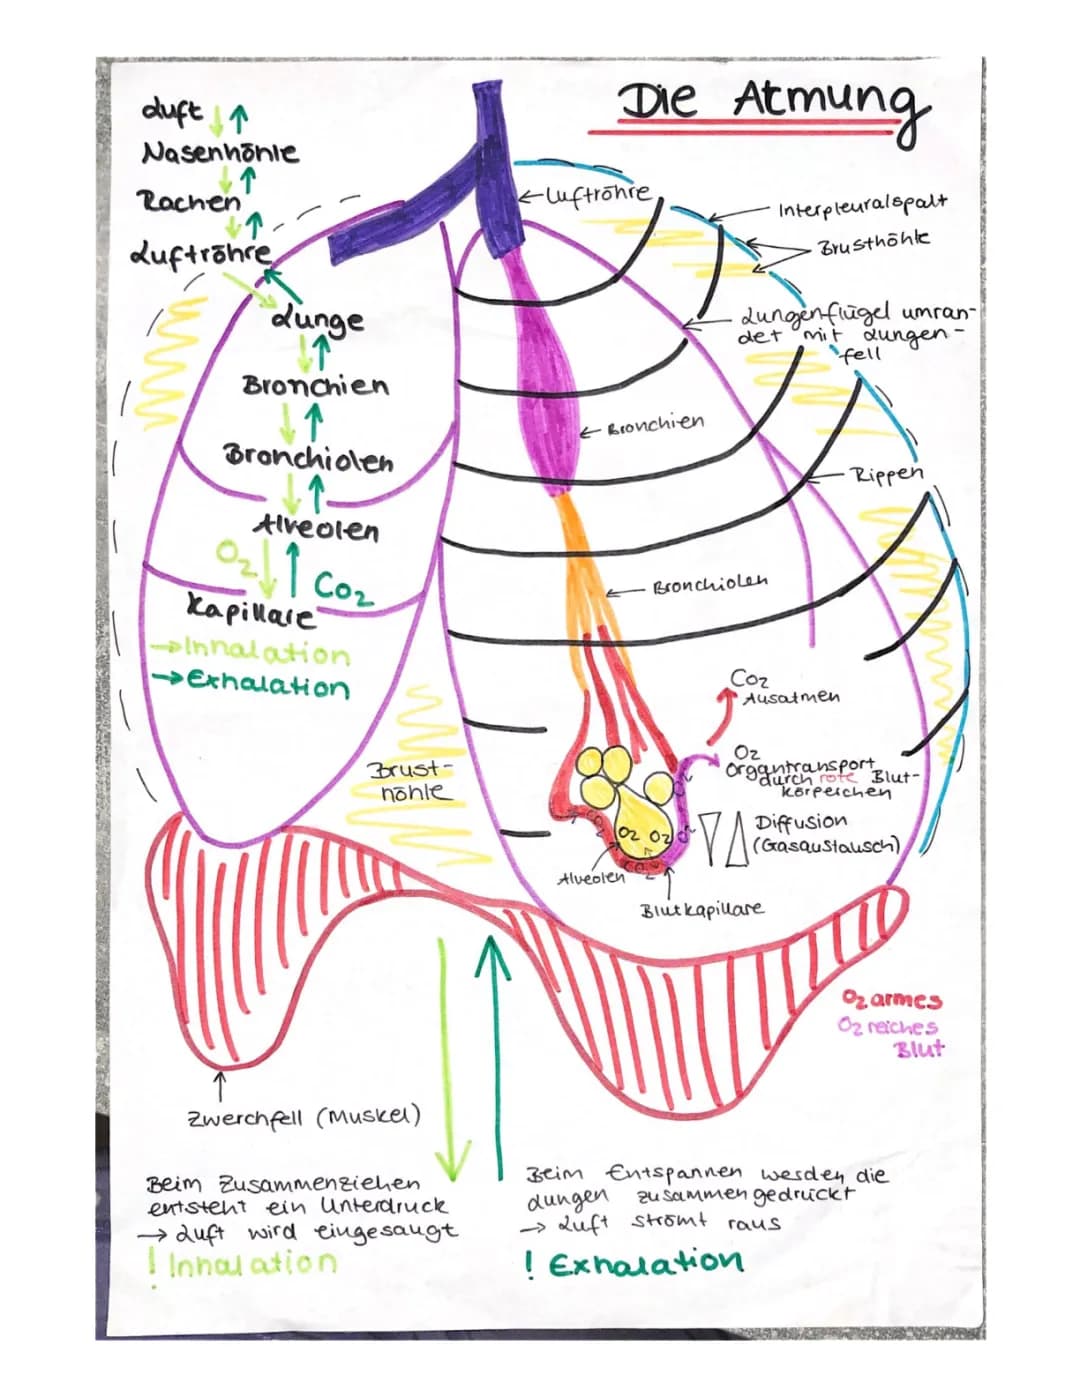 Die Atmung
Luft
Nasenhöhle
Rachen
Luftröhre
Lunge
Bronchien
Bronchiolen
Alveolen
O2
CO2
Kapillare
→Inhalation
→Exhalation
Luftröhre
Interpleuralspalt
Brusthöhle
Lungenflügel umran-
det mit Lungen-
fell
Bronchien
Rippen
Bronchiolen
CO2
Ausatmen
O2
Organtransport
durch rote Blut-
körperchen
Diffusion
(Gasaustausch)
O2 O2
Alveolen
Blutkapillare
Brust-
höhle
O2 armes
O2 reiches
Blut
Zwerchfell (Muskel)
Beim Zusammenziehen
entsteht ein Unterdruck
→ Luft wird eingesaugt
! Inhalation
Beim Entspannen werden die
Lungen zusammengedrückt
→ Luft strömt raus
! Exhalation